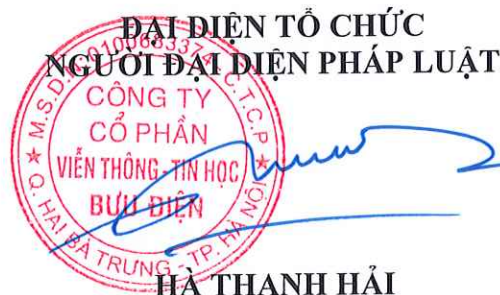 ĐẠI DIỆN TỔ CHỨC
NGƯỜI ĐẠI DIỆN PHÁP LUẬT
M.S.D.N:0100683374 C.T.C.P
CÔNG TY
CỔ PHẦN
VIỄN THÔNG-TIN HỌC
BƯU ĐIỆN
Q. HAI BÀ TRƯNG - TP. HÀ NỘI
HÀ THANH HẢI